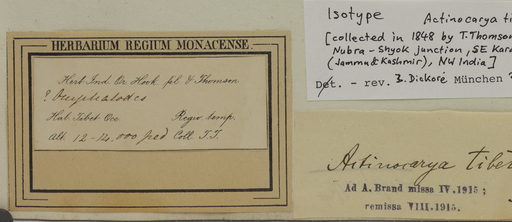 HERBARIUM REGIUM MONACENSE.
Herb. Ind. Or. Hook. fil. & Thomson
? Omphalodes
Hab. Tibet Occ. Regio temp.
Alt. 12-14,000 ped Coll. T.T.
Isotype Actinocarya ti
[collected in 1848 by T. Thomson
Nubra - Shyok junction, SE Kara
(Jammu & Kashmir), NW India]
Det. - rev. B. Dickoré München
Actinocarya tibe
Ad A. Brand missa IV. 1915;
remissa VIII. 1915.